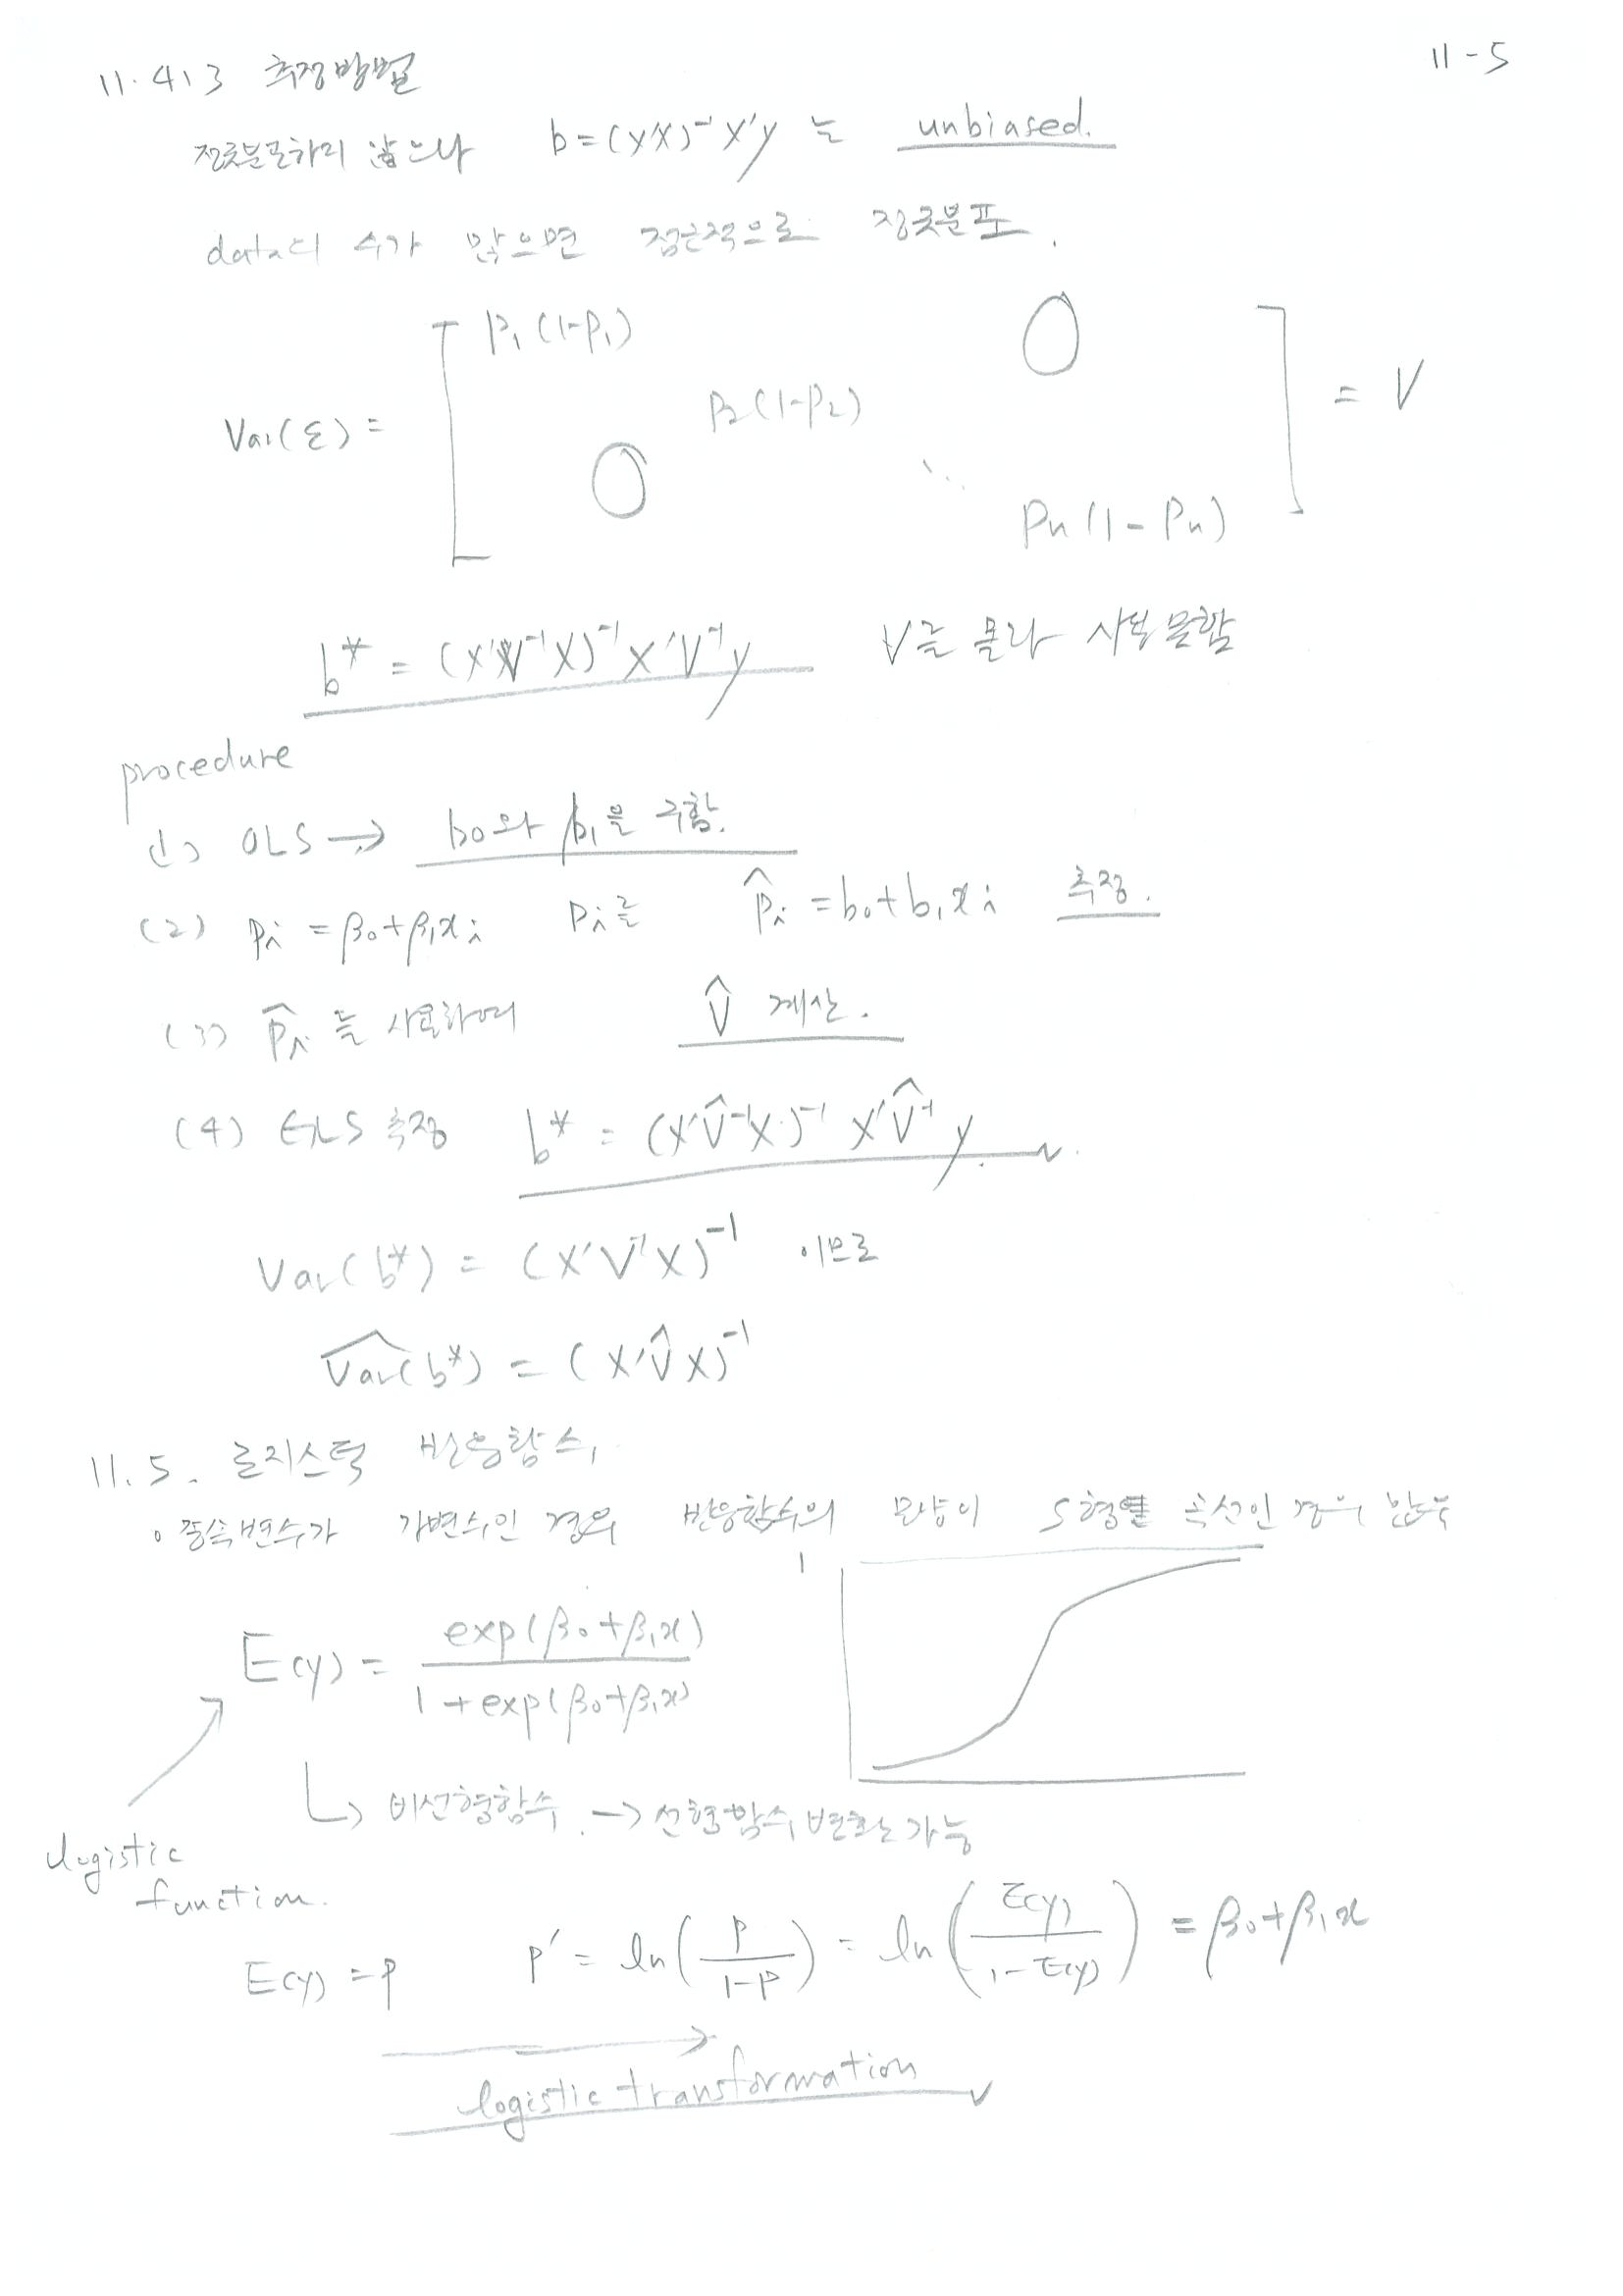 11-5
11.4.3 추정방법
정규분포하지 않으나 b=(X'X)⁻¹X'y 는 unbiased.
data의 수가 많으면 점근적으로 정규분포.
Var(ε) = [ p₁(1-p₁) 0
p₂(1-p₂)
0 ⋱
pₙ(1-pₙ) ] = V
b* = (X'V⁻¹X)⁻¹X'V⁻¹y V를 몰라 사용 못함
procedure
(1) OLS → b₀와 b₁을 구함.
(2) pᵢ = β₀+β₁xᵢ pᵢ를 p̂ᵢ = b₀+b₁xᵢ 추정.
(3) p̂ᵢ를 사용하여 V̂ 계산.
(4) GLS 추정 b* = (X'V̂⁻¹X)⁻¹ X'V̂⁻¹y.
Var(b*) = (X'V⁻¹X)⁻¹ 이므로
V̂ar(b*) = (X'V̂X)⁻¹
11.5. 로지스틱 반응함수
◦ 종속변수가 가변수인 경우 반응함수의 모양이 S형 곡선인 경우 많음
1
E(y) = exp(β₀+β₁x) / 1+exp(β₀+β₁x)
↳ 비선형함수. → 선형함수 변환가능
logistic
function.
E(y) = p p' = ln(p/1-p) = ln(E(y)/1-E(y)) = β₀+β₁x
logistic transformation